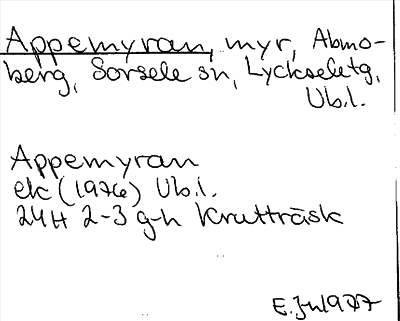 Appemyran, myr, Abmo-
berg, Sorsele sn, Lycksele tg,
Vb.l.
Appemyran
ek (1976) Vb.l.
24H 2-3 g-h Krutträsk
E. Jul 1977